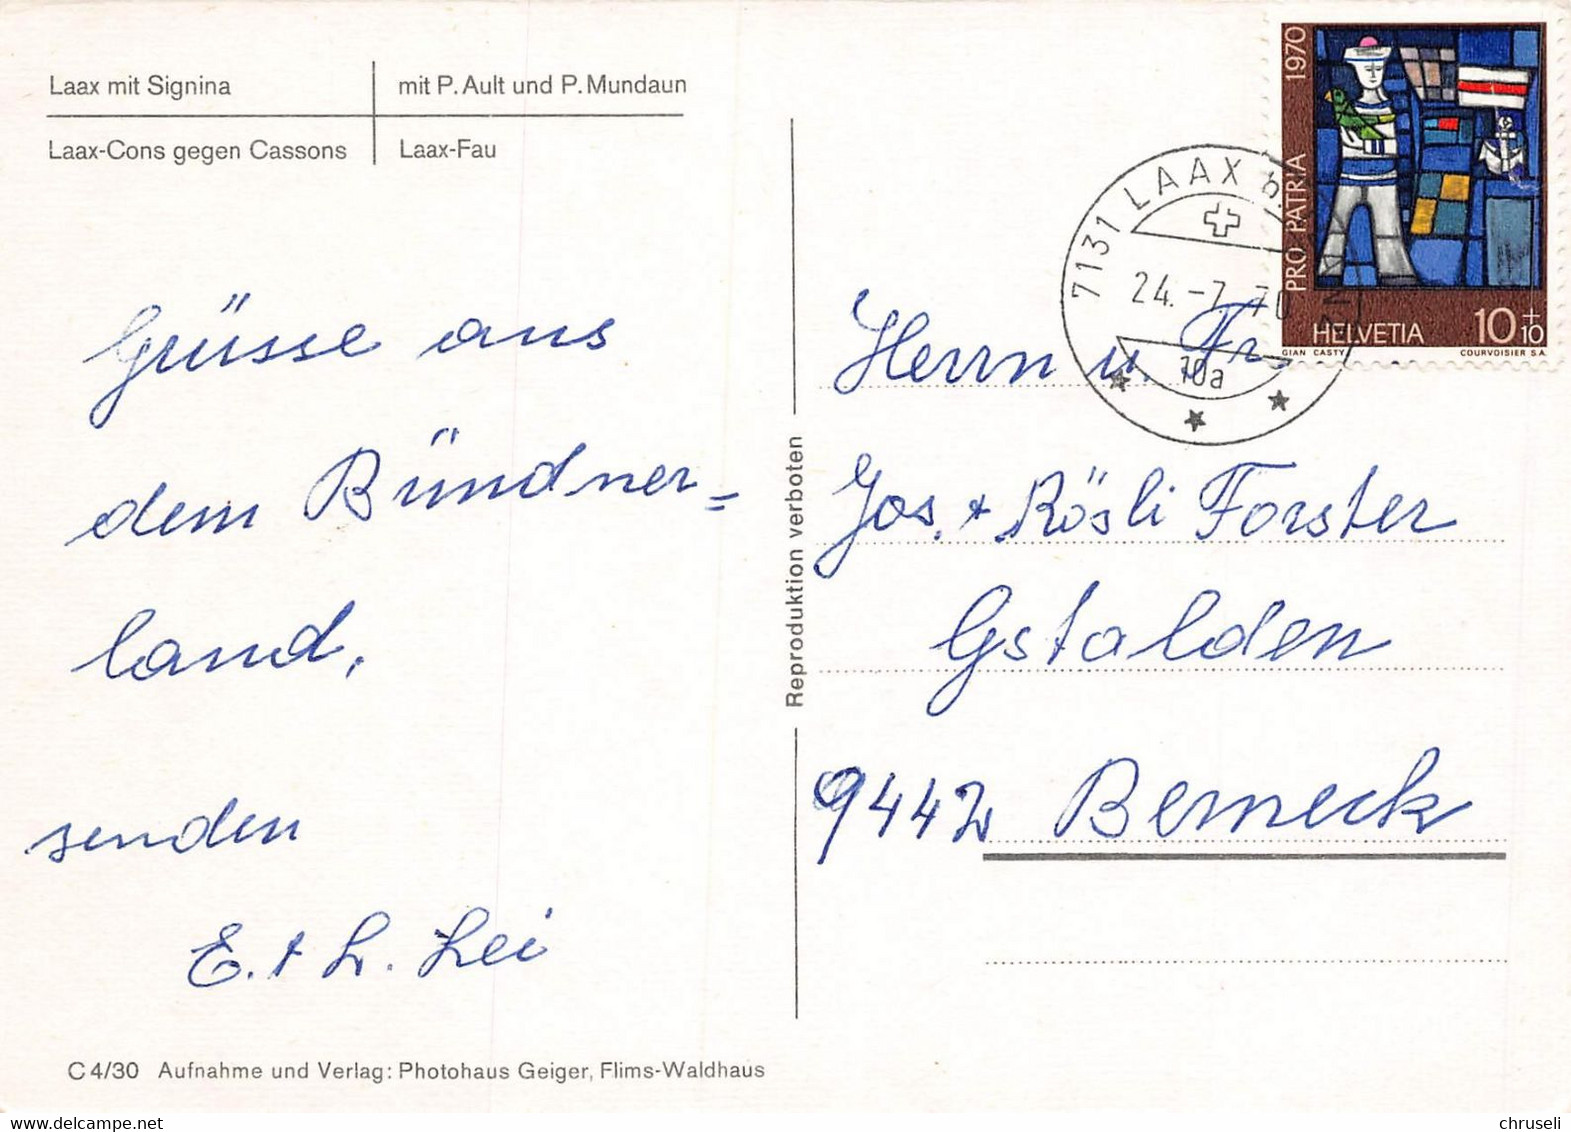 Laax mit Signina
mit P. Ault und P. Mundaun
Laax-Cons gegen Cassons
Laax-Fau
Grüsse aus
dem Bündner=
land,
senden
E. + L. Lei
C 4/30 Aufnahme und Verlag: Photohaus Geiger, Flims-Waldhaus
Reproduktion verboten
1970
PRO PATRIA
HELVETIA 10+10
GIAN CASTY COURVOISIER S.A.
7131 LAAX b.
24.-7.70
10a
Herrn u. Fr.
Jos. + Rösli Forster
Gstalden
9442 Berneck
chruseli